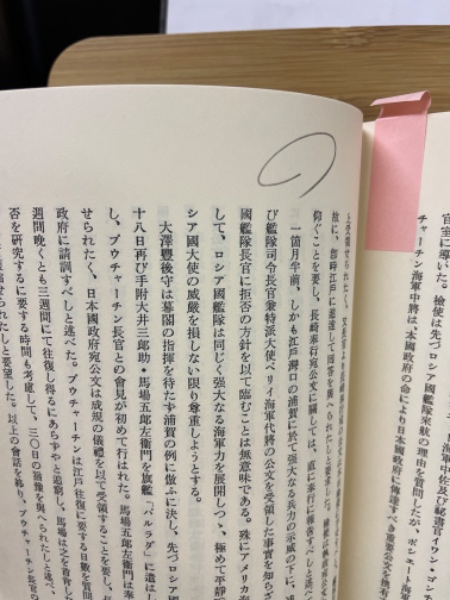 海軍中佐及び祕書官イワン・ゴン
官室に導いた。檢使は先づロシア國艦隊來航の理由を質問したが、ポシェート海軍
チャーチン海軍中將は、本國政府の命により日本國政府に傳達すべき重要公文を有
故に、卽時江戸に進達して回答を與へられたしと要求した。
仰ぐことを要し、長崎奉行宛公文に關しては、直に奉行に報告すべしと述べ
一箇月半前、しかも江戸灣口の浦賀に於て强大なる兵力の示威の下に、
び艦隊司令長官兼特派大使ペリイ海軍代將の公文を受領した事實を知らざ
國艦隊長官に拒否の方針を以て臨むことは無意味である。殊にアメリカ海
して、ロシア國艦隊は同じく强大なる海軍力を展開しつゝ、極めて平靜で
シア國大使の威嚴を損しない限り尊重しようとする。
大澤豐後守は幕閣の指揮を待たず浦賀の例に倣ふに決し、先づロシア國
十八日再び手附大井三郎助・馬場五郎左衞門を旗艦「パルラダ」に遣はし
し、プウチャーチン長官との會見が初めて行はれた。馬場五郎左衞門は奉
せられたく、日本國政府宛公文は成規の儀禮を以て受領することを要し、
政府に請訓すべしと述べた。プウチャーチンは江戸往復に要する日數を質問
週間晚くとも三週間にて往復し得るにあらずやと追窮し、馬場は之を首肯した
否を硏究するに要する時間も考慮して、三〇日の猶豫を與へられたしと述べ、
せられたしと要望した。以上の會話を終り、プウチャーチン長官の